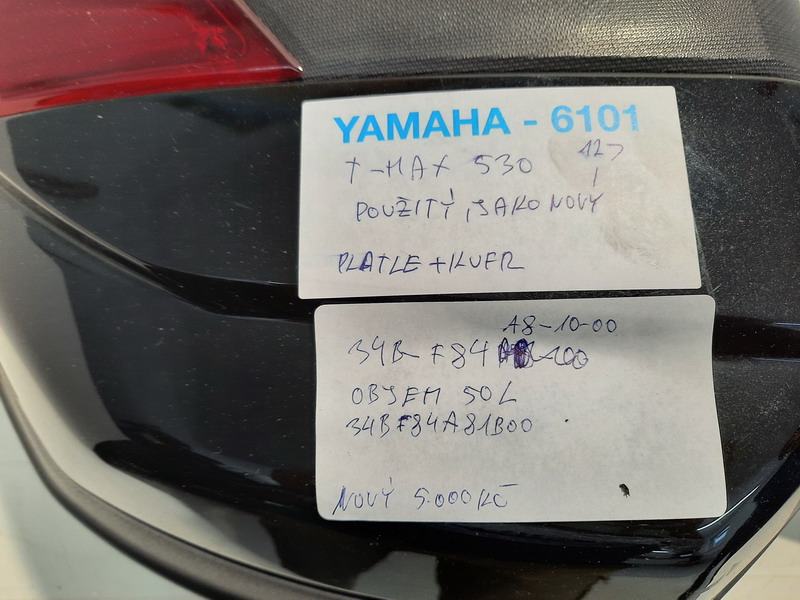 YAMAHA - 6101
T-MAX 530
POUŽITÝ, JAKO NOVÝ
PLATLE + KUFR
A8-10-00
34B F84
OBJEM 50L
34BF84A81B00
NOVÝ 5.000 KČ